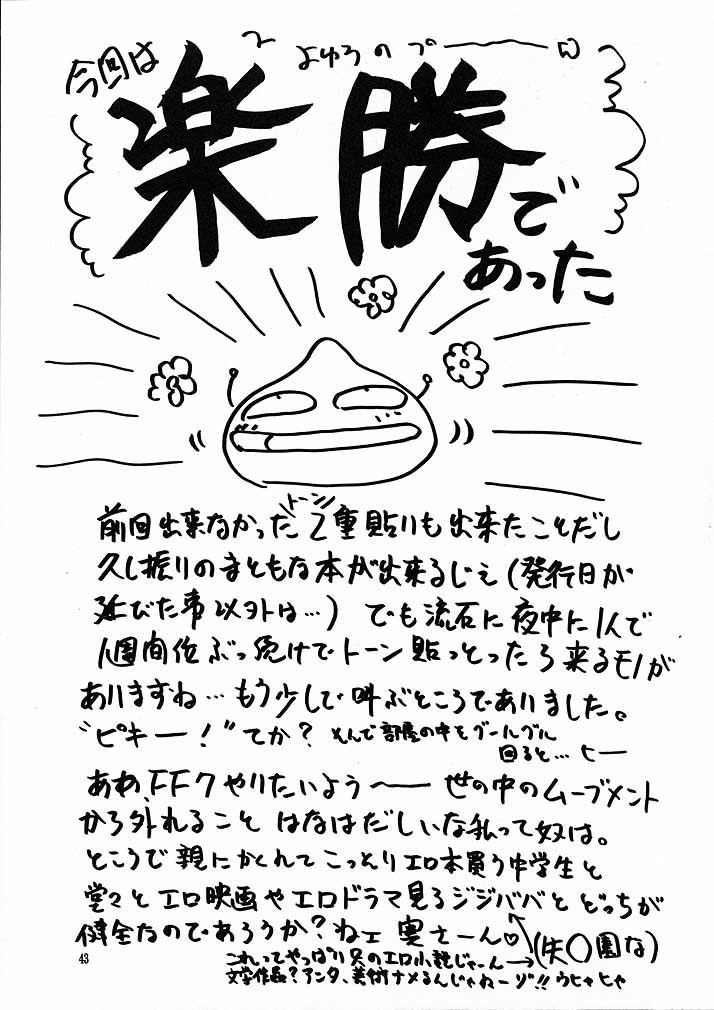 今回は
よゆうのプー
楽勝で
あった
トーン
前回出来なかった2重貼りも出来たことだし
久し振りのまともな本が出来るじぇ(発行日が
延びた事以外は…)でも流石に夜中に1人で
1週間位ぶっ続けでトーン貼っとったら来るモノが
ありますね…もう少しで叫ぶところでありました。
"ピキー!"てか?そんで部屋の中をグールグル
回ると…ヒー
ああ、FF7やりたいよう〜世の中のムーブメント
から外れること はなはだしいな私って奴は。
ところで親にかくれてこっとりエロ本買う中学生と
堂々とエロ映画やエロドラマ見るジジババとどっちが
健全なのであろうか?ねェ奥さーん♡(失〇園な)
これってやっぱりのエロ小説じゃーん→
文学作品?アンタ、美術ナメるんじゃねーゾ!!ウヒャヒャ
43